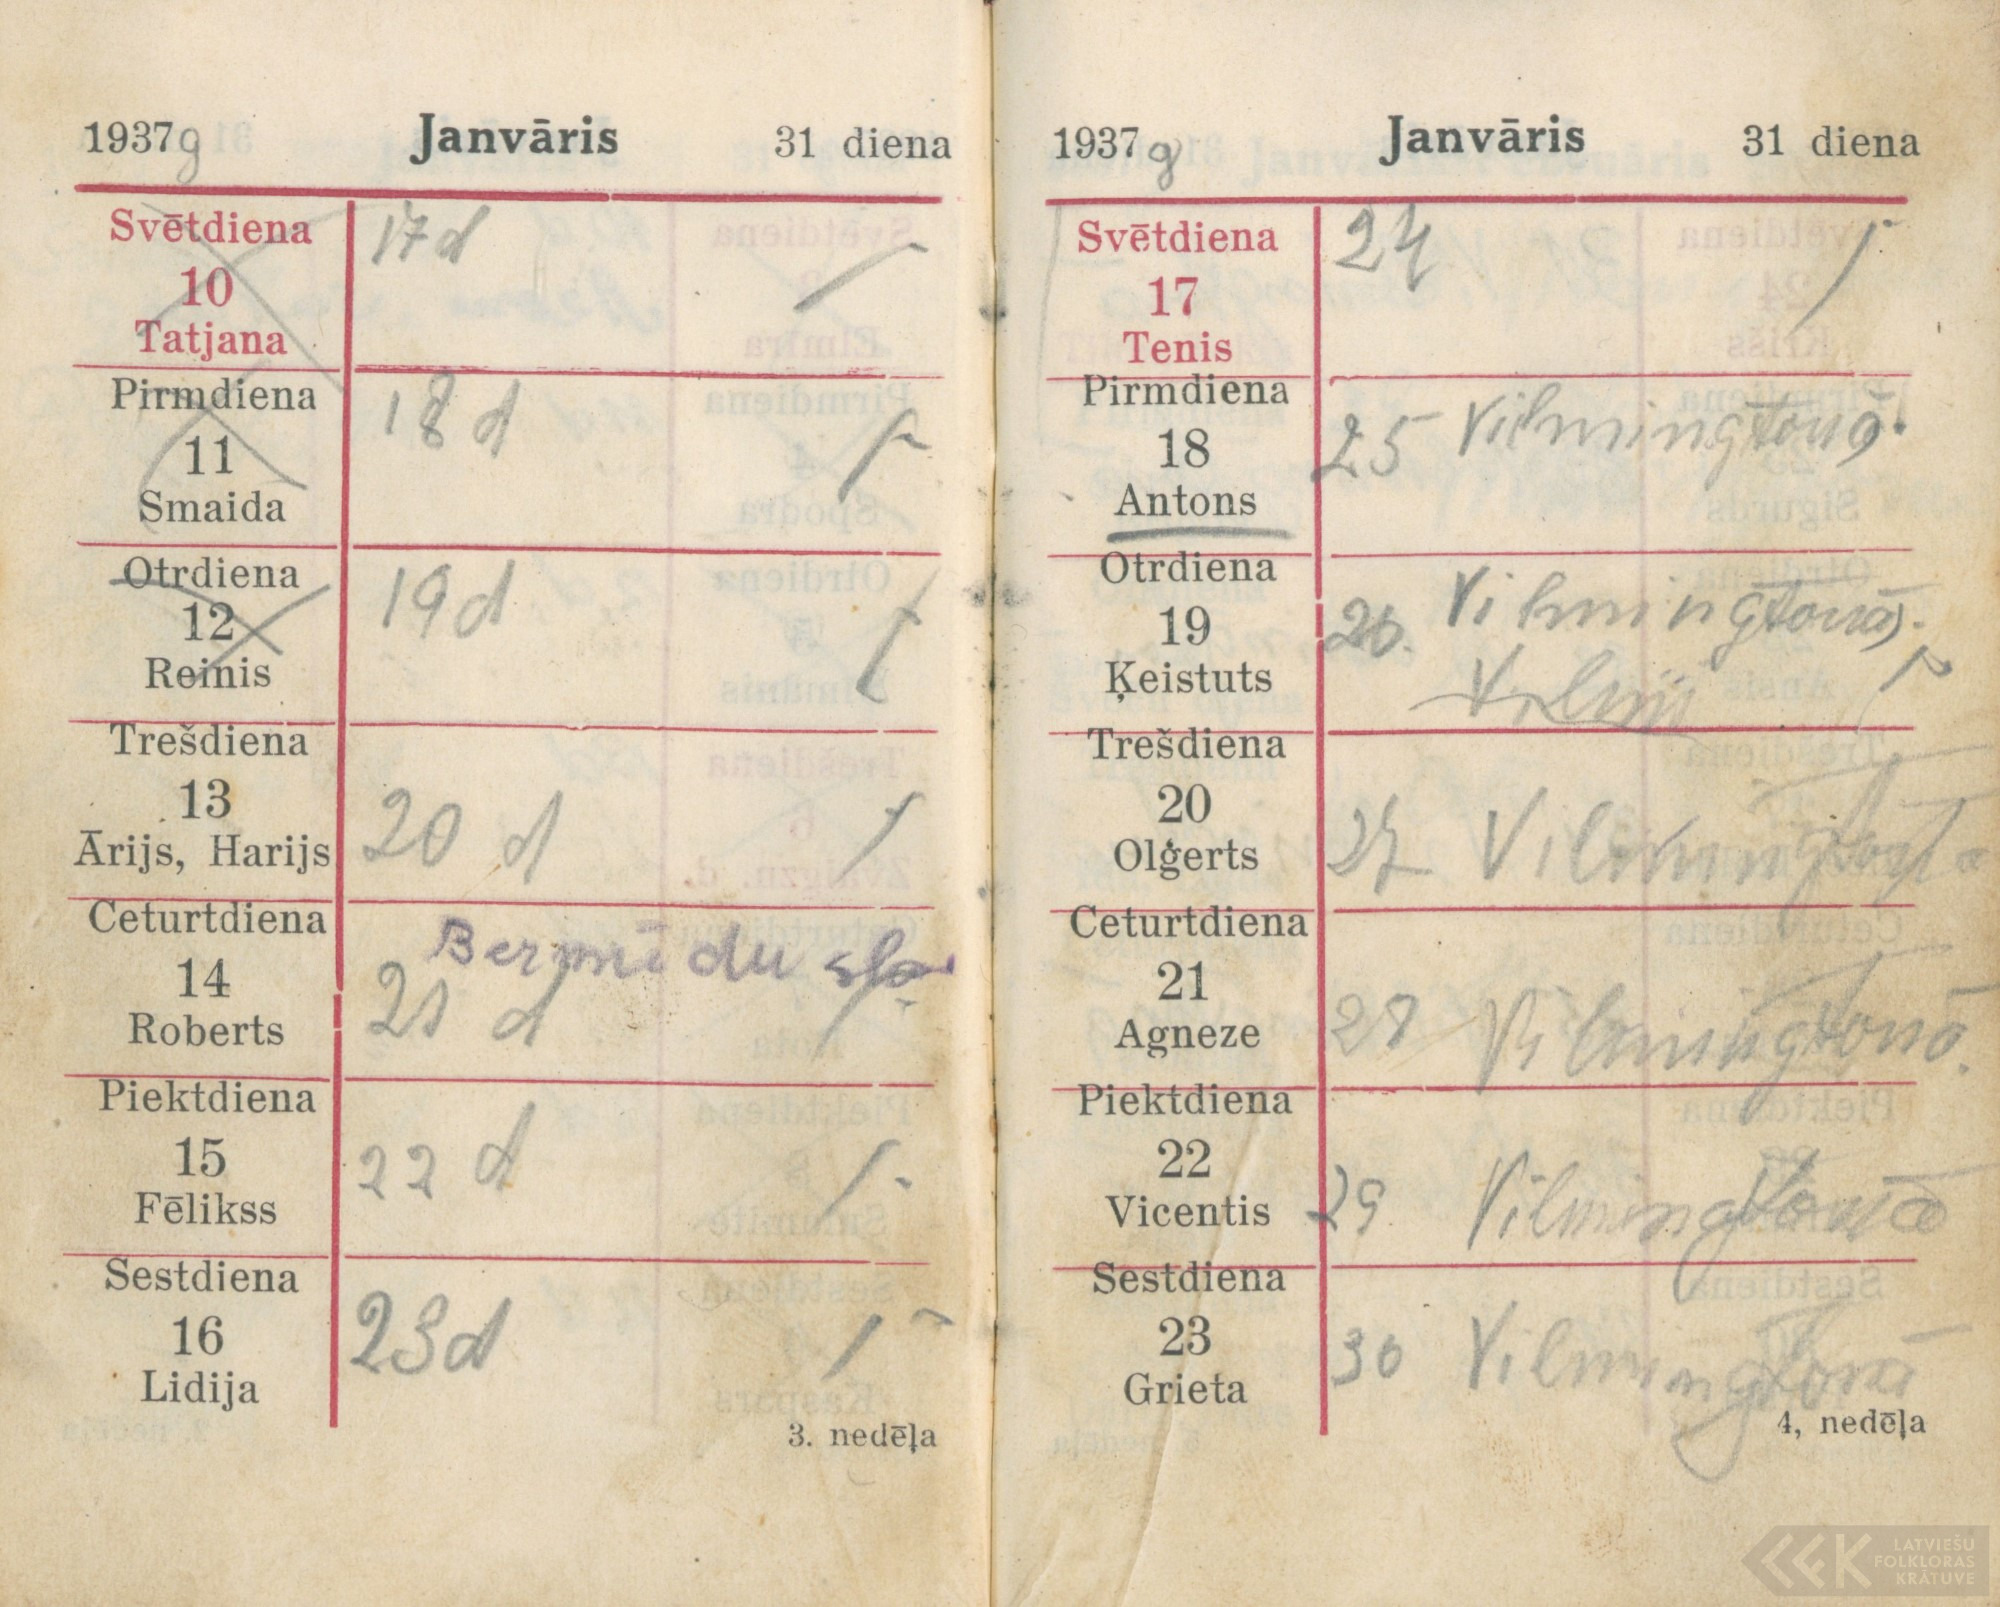 1937g Janvāris 31 diena
Svētdiena 17d
10
Tatjana
Pirmdiena 18 d
11
Smaida
Otrdiena 19d
12
Reinis
Trešdiena
13 20 d
Ārijs, Harijs
Ceturtdiena Bermūdu
14 21 d
Roberts
Piektdiena
15 22 d
Fēlikss
Sestdiena
16 23d
Lidija
3. nedēļa
1937g Janvāris 31 diena
Svētdiena 24
17
Tenis
Pirmdiena
18 25 Vilmingtonā.
Antons
Otrdiena Vilmingtonā.
19 26.
Ķeistuts
Trešdiena
20 27 Vilmingtonā
Olģerts
Ceturtdiena
21 28 Vilmingtonā.
Agneze
Piektdiena
22
Vicentis 29 Vilmingtonā
Sestdiena
23 30 Vilmingtonā
Grieta
4, nedēļa
LATVIEŠU
FOLKLORAS
KRĀTUVE